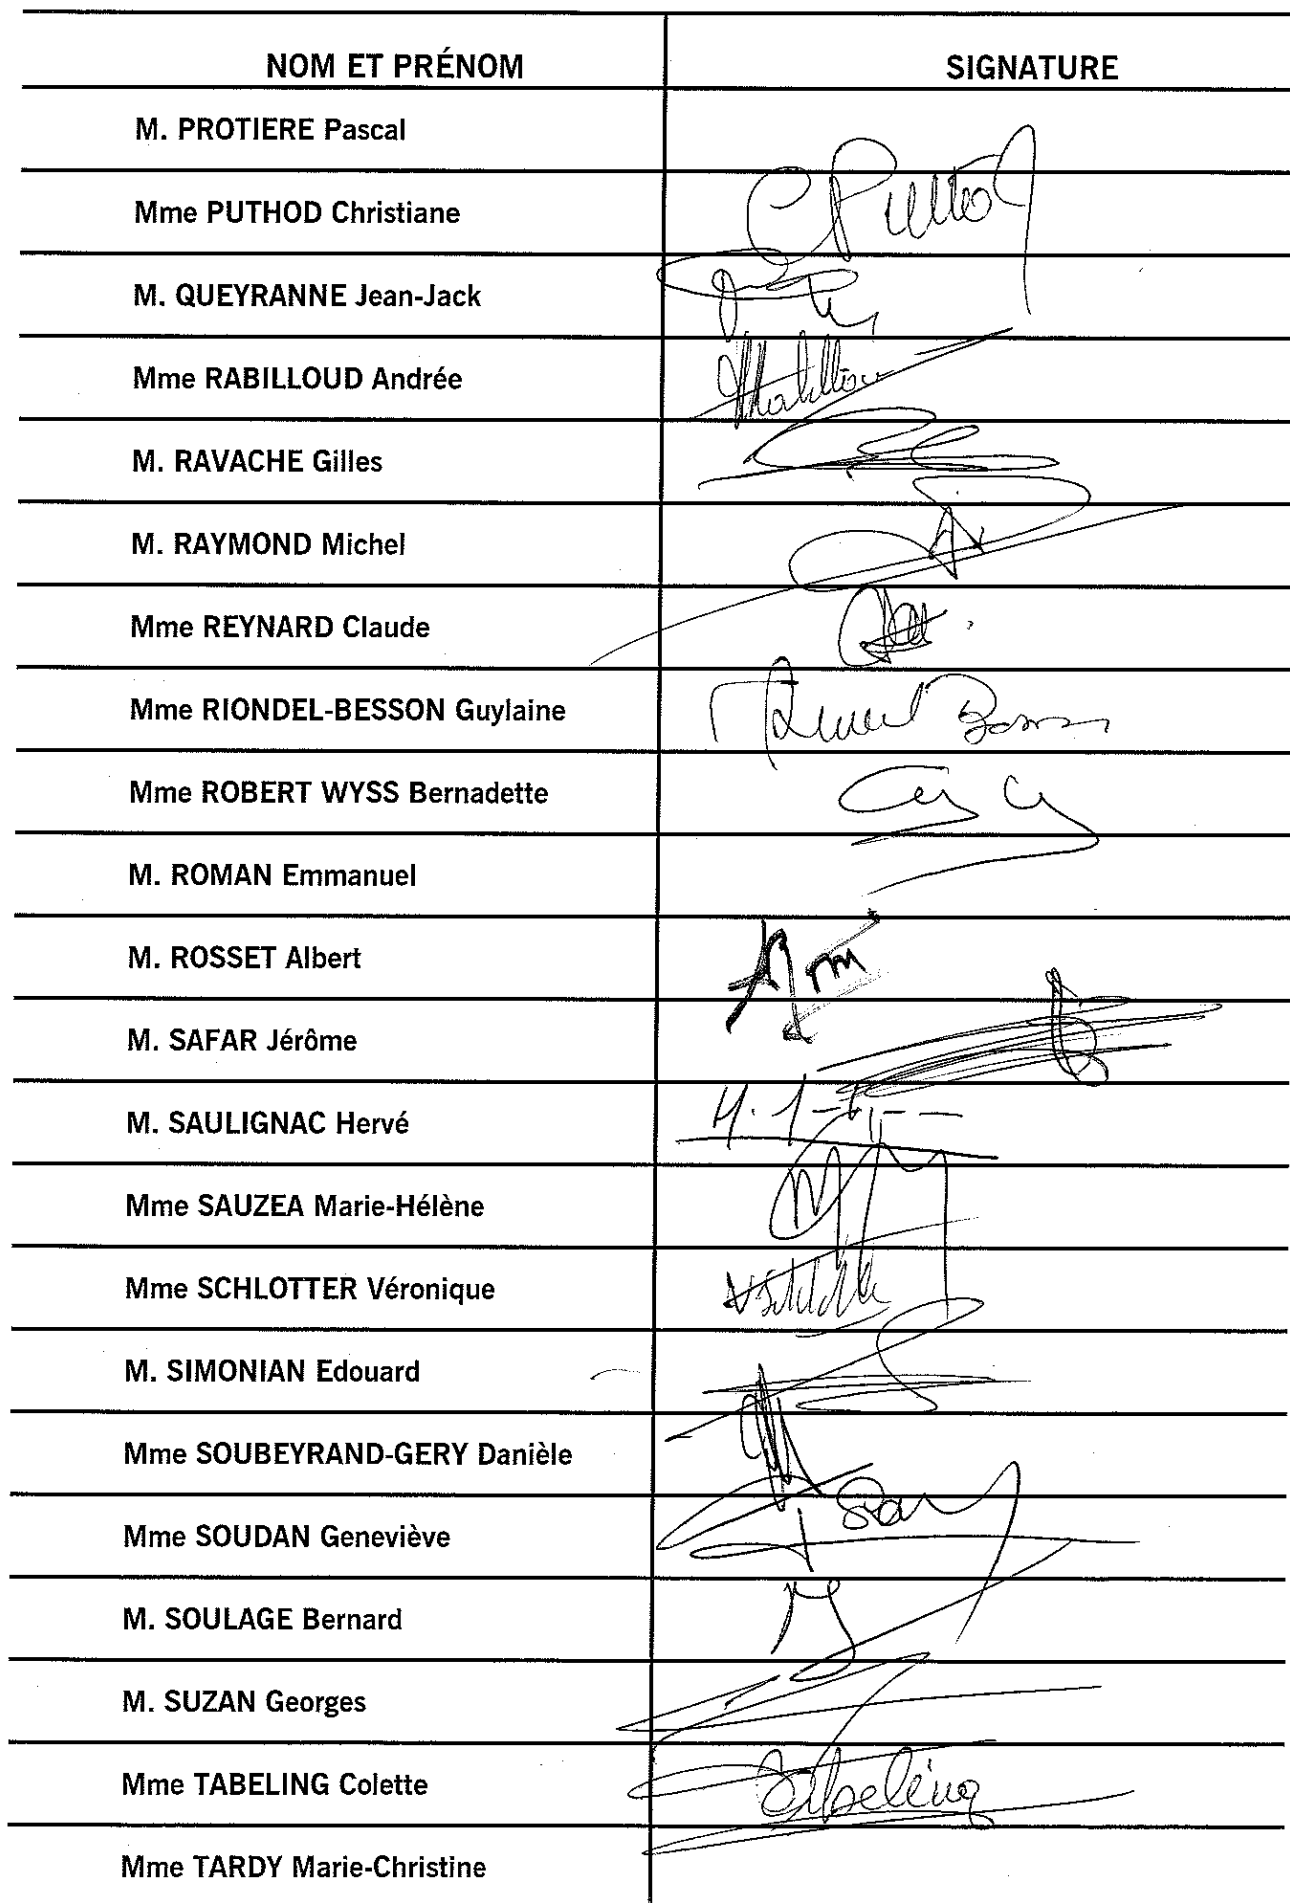 NOM ET PRÉNOM SIGNATURE
M. PROTIERE Pascal
Mme PUTHOD Christiane
M. QUEYRANNE Jean-Jack
Mme RABILLOUD Andrée
M. RAVACHE Gilles
M. RAYMOND Michel
Mme REYNARD Claude
Mme RIONDEL-BESSON Guylaine
Mme ROBERT WYSS Bernadette
M. ROMAN Emmanuel
M. ROSSET Albert
M. SAFAR Jérôme
M. SAULIGNAC Hervé
Mme SAUZEA Marie-Hélène
Mme SCHLOTTER Véronique
M. SIMONIAN Edouard
Mme SOUBEYRAND-GERY Danièle
Mme SOUDAN Geneviève
M. SOULAGE Bernard
M. SUZAN Georges
Mme TABELING Colette
Mme TARDY Marie-Christine